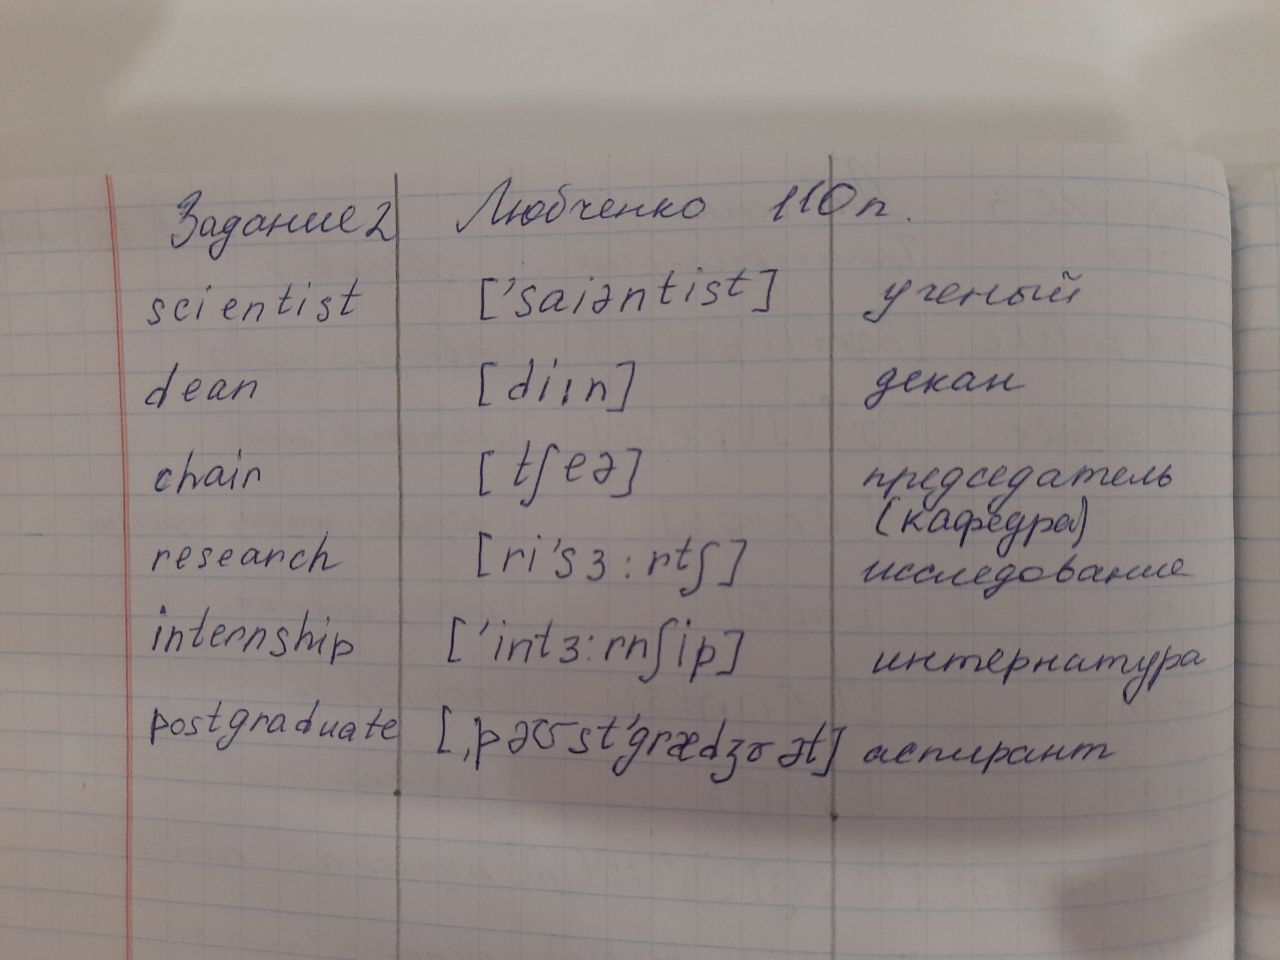 Задание 2 Любченко 110 п.
scientist ['saiəntist] ученый
dean [di:n] декан
chair [tʃeə] председатель
(кафедра)
research [ri'sɜ:rtʃ] исследование
internship ['intɜ:rnʃip] интернатура
postgraduate [,pəʊst'grædʒʊət] аспирант